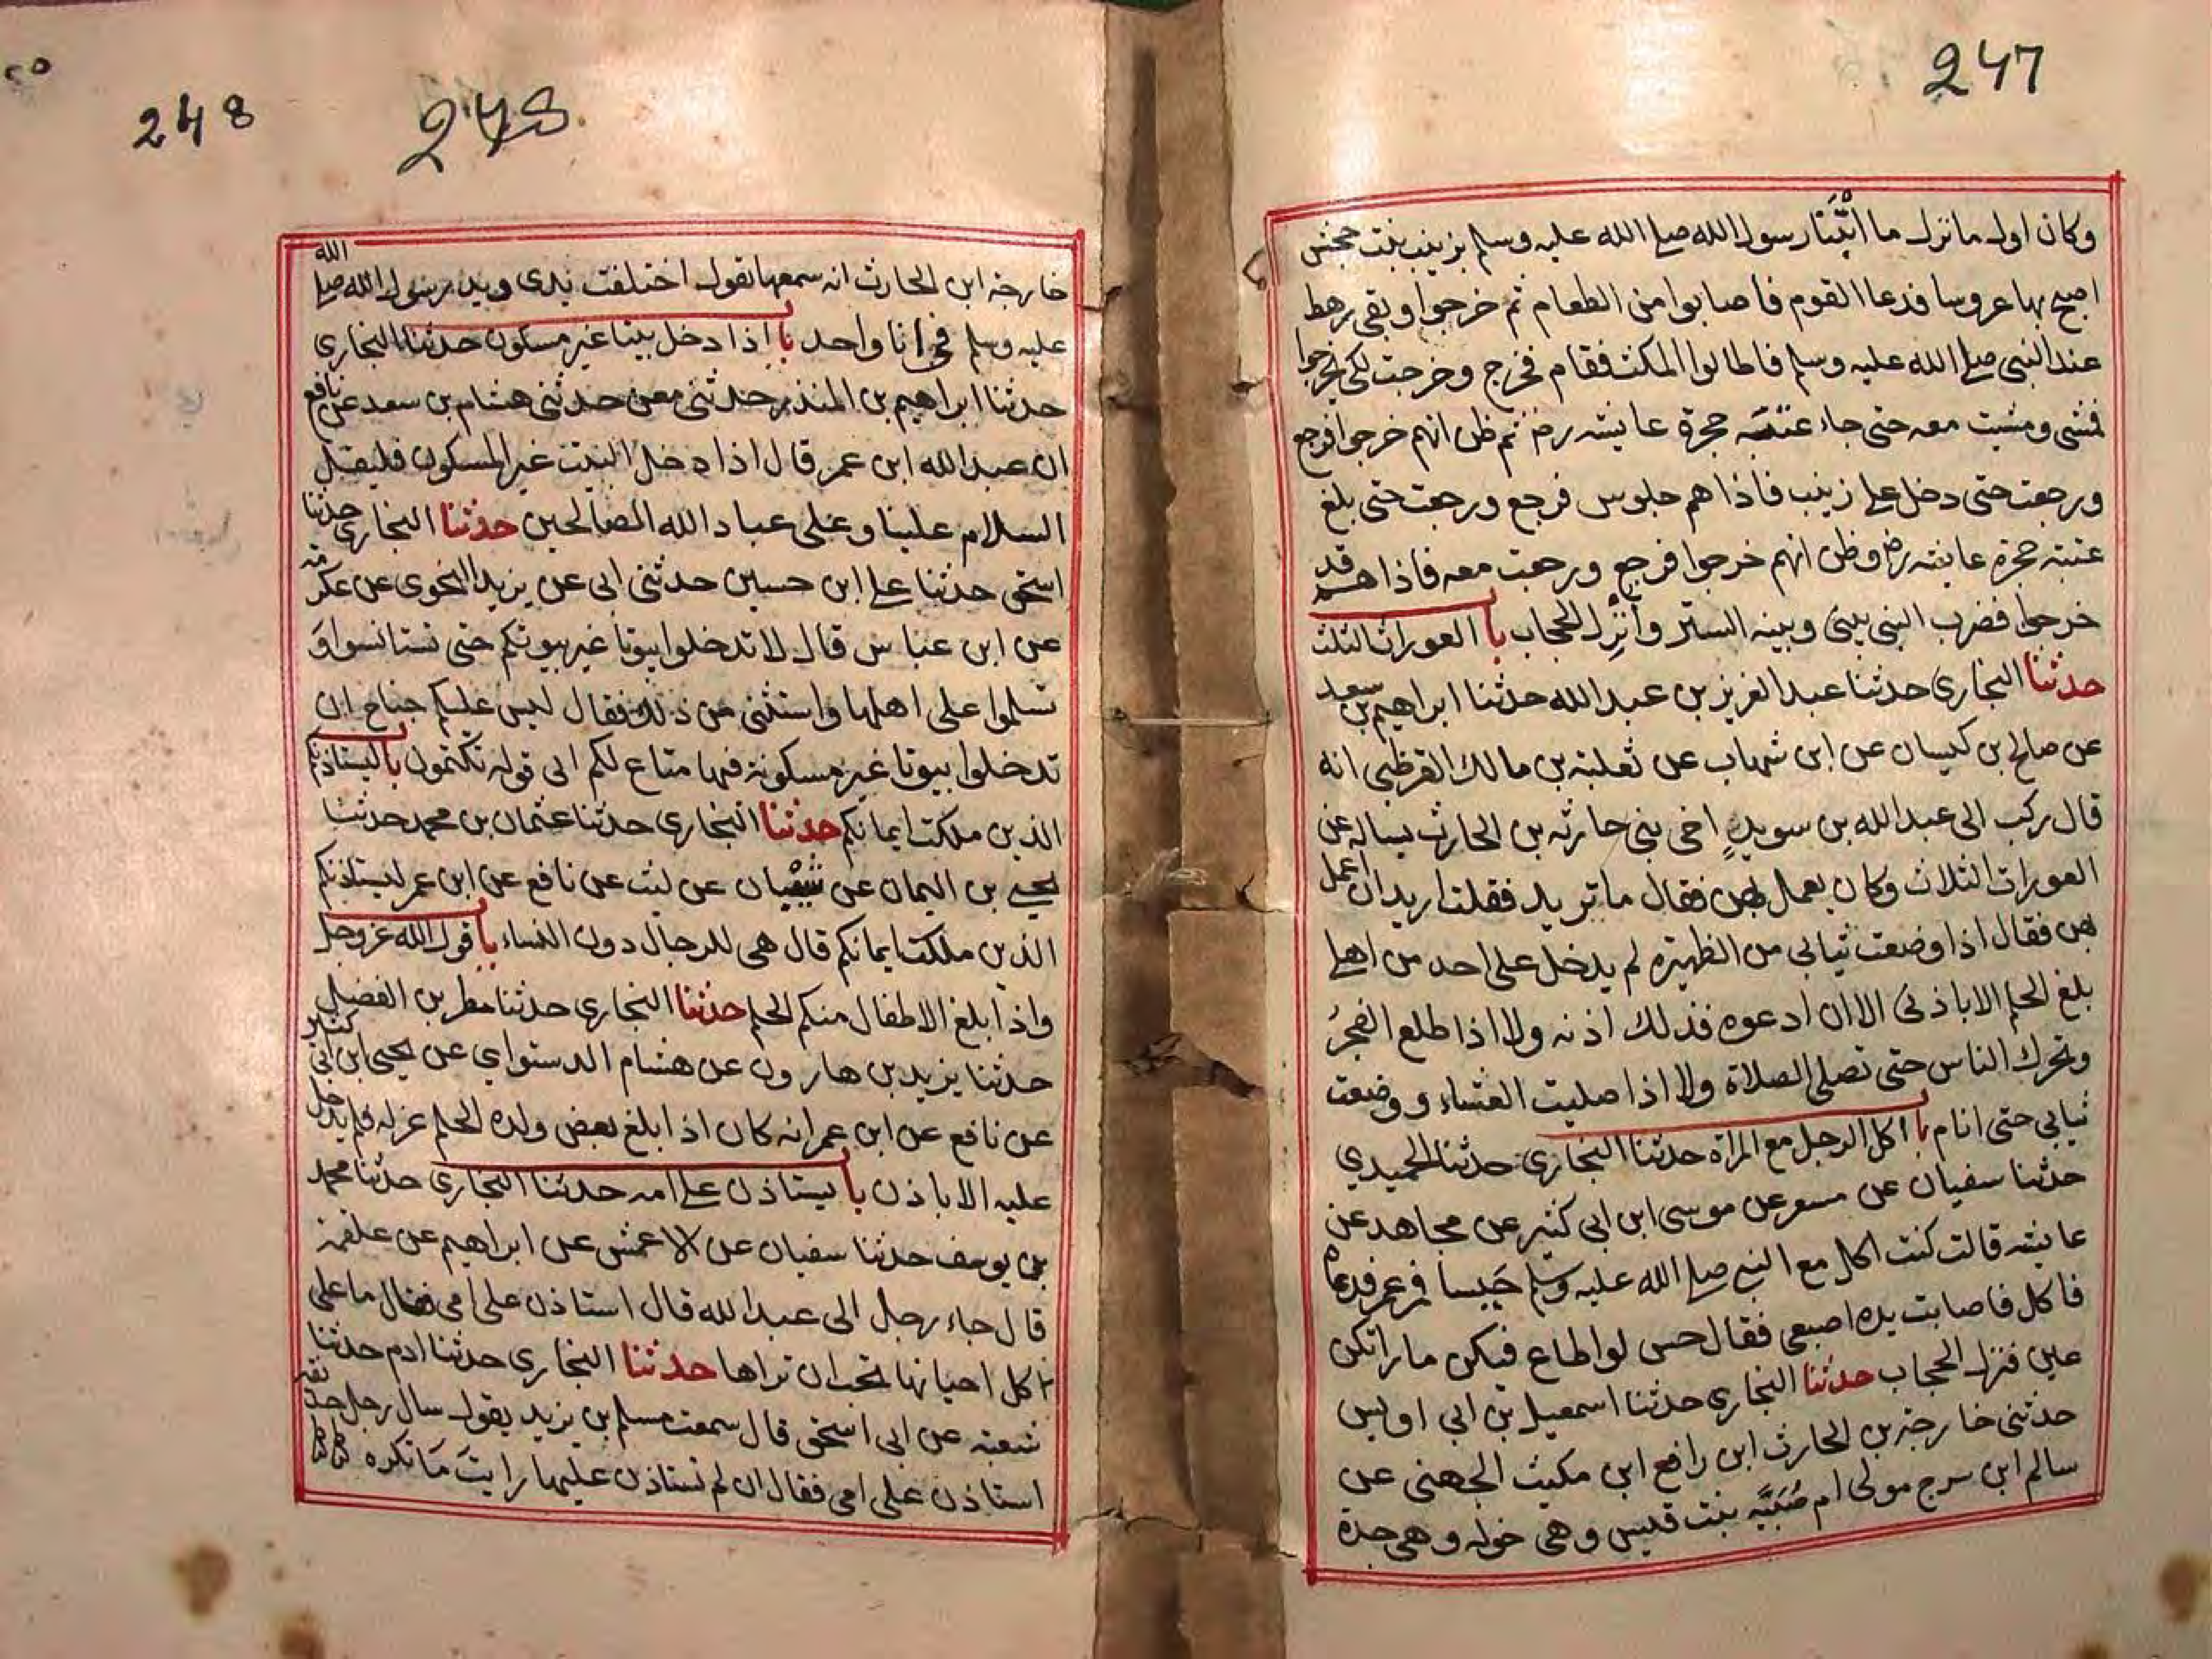 247
وكان اول ما نزل ما ابتنا رسول الله صلے الله عليه وسلم بزينب بنت جحش
اصبح بها عروسا فدعا القوم فاصابوا من الطعام ثم خرجوا وبقى رهط
عند النبي صلے الله عليه وسلم فاطالوا المكث فقام فخرج وخرجت لكى يخرجوا
فمشى ومشيت معه حتى جاء عتبه حجرة عايشه رض ثم ظن انهم خرجوا فرجع
ورجعت حتى دخل على زينب فاذا هم جلوس فرجع ورجعت حتى بلغ
عتبه حجرة عايشه رض وظن انهم خرجوا فرجع ورجعت معه فاذا هم قد
خرجوا فضرب النبي بينى وبينه الستر وانزل الحجاب با العورات الثلث
حدثنا البخارى حدثنا عبد العزيز بن عبد الله حدثنا ابراهيم بن سعد
عن صالح بن كيسان عن ابن شهاب عن ثعلبة بن مالك القرظي انه
قال ركب الى عبد الله بن سويد اخى بنى حارثه بن الحارث يساله عن
العورات الثلاث وكان يعمل بهن فقال ما تريد فقلت اريد ان اعمل
بهن فقال اذا وضعت ثيابى من الظهيره لم يدخل على احد من اهلے
بلغ الحلم الا باذنى الا ان ادعوه فذلك اذنه ولا اذا طلع الفجر
وتحرك الناس حتى تصلى الصلاة ولا اذا صليت العشاء ووضعت
ثيابي حتى انام با اكل الرجل مع المراة حدثنا البخارى حدثنا الحميدي
حدثنا سفيان عن مسعر عن موسى ابن ابى كثير عن مجاهد عن
عايشه قالت كنت اكل مع النبي صلے الله عليه وسلم حيسا فمر عمر فدعاه
فاكل فاصابت يده اصبعى فقال حس لو اطاع فيكن ما راتكن
عين فنزل الحجاب حدثنا البخارى حدثنا اسمعيل بن ابى اويس
حدثنى خارجة بن الحارث ابن رافع ابن مكيث الجهنى عن
سالم ابن سرج مولى ام صُبَيَّه بنت قيس وهى خوله وهى جدة
248
248
خارجة ابن الحارث انه سمعها تقول اختلفت يدى ويد رسول الله صلے الله
عليه وسلم فى انا واحد با اذا دخل بيتا غير مسكون حدثنا البخارى
حدثنا ابراهيم بن المنذر حدثنى معن حدثنى هشام بن سعد عن نافع
ان عبد الله ابن عمر قال اذا دخل البيت غير المسكون فليقل
السلام علينا وعلى عباد الله الصالحين حدثنا البخارى حدثنا
اسحق حدثنا على ابن حسين حدثنى ابى عن يزيد النحوى عن عكرمه
عن ابن عباس قال لا تدخلوا بيوتا غير بيوتكم حتى تستانسوا و
تسلموا على اهلها واستثنى من ذلك فقال ليس عليكم جناح ان
تدخلوا بيوتا غير مسكونة فيها متاع لكم الى قوله تكتمون با ليستاذنكم
الذين ملكت ايمانكم حدثنا البخارى حدثنا عثمان بن محمد حدثنا
يحيے بن اليمان عن عن ليث عن نافع عن ابن عمر ليستاذنكم
الذين ملكت ايمانكم قال هى للرجال دون النساء با قول الله عز وجل
واذا بلغ الاطفال منكم الحلم حدثنا البخارى حدثنا مطر بن الفضل
حدثنا يزيد بن هارون عن هشام الدستواي عن يحيى ابن ابى كثير
عن نافع عن ابن عمر انه كان اذا بلغ بعض ولده الحلم عزله فلم يدخل
عليه الا باذن با يستاذن على امه حدثنا البخارى حدثنا محمد
بن يوسف حدثنا سفيان عن الاعمش عن ابراهيم عن علقمة
قال جاء رجل الى عبد الله قال استاذن على امى فقال ما على
كل احيانها تحب ان تراها حدثنا البخارى حدثنا ادم حدثنا
شعبه عن ابى اسحق قال سمعت مسلم بن يزيد يقول سال رجل حذيفه
استاذن على امى فقال ان لم تستاذن عليها رايت ما تكره